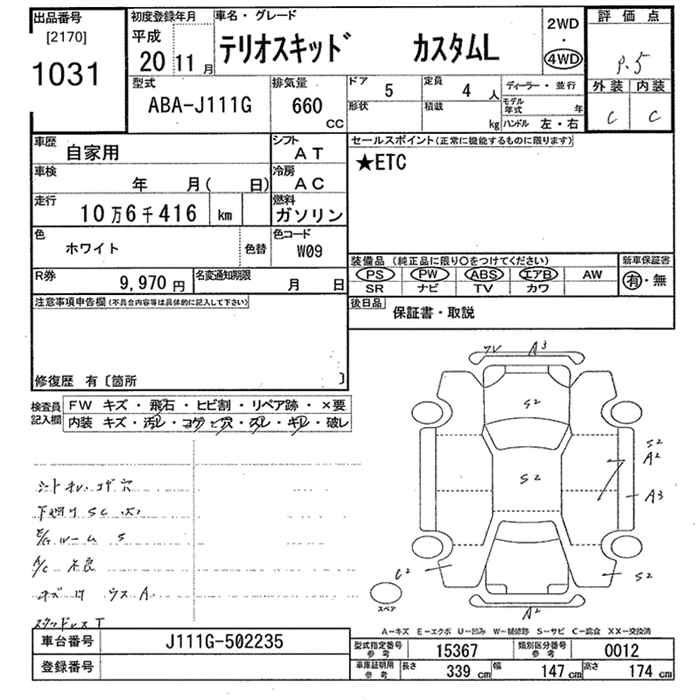 出品番号
[2170]
1031
初度登録年月
平成
20 11 月
車名・グレード
テリオスキッド カスタムL
2WD
・
4WD
評価点
P.5
外装 内装
C C
型式
ABA-J111G
排気量
660 CC
ドア 5
定員 4 人
形状
積載 kg
ディーラー・並行
モデル年式 年
ハンドル 左・右
車歴 自家用
シフト AT
車検 年 月( 日)
冷房 AC
走行 10万6千416 km
燃料 ガソリン
色 ホワイト 色替
色コード W09
R券 9,970 円
名変通知期限 月 日
セールスポイント(正常に機能するものに限ります)
★ETC
装備品 (純正品に限り○をつけてください)
PS PW ABS エアB AW
SR ナビ TV カワ
新車保証書
有・無
後日品 保証書・取説
注意事項申告欄(不具合内容等は具体的に記入して下さい)
修復歴 有〔箇所 〕
検査員記入欄
FW キズ・飛石・ヒビ割・リペア跡・×要
内装 キズ・汚レ・コゲ・穴・スレ・キレ・破レ
下廻り SC
S
A/C 不良
ウス A
スタッドレス T
A3
S2
S2
S2
A2
A3
C2
S2
A2
スペア
A－キズ E－エクボ U－凹み W－補修跡 S－サビ C－腐食 XX－交換済
車台番号 J111G-502235
登録番号
型式指定番号 参考 15367
類別区分番号 参考 0012
車庫証明用 参考
長さ 339 cm
幅 147 cm
高さ 174 cm